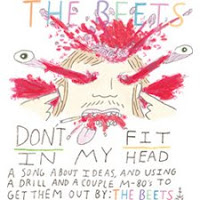 THE BEETS
DONT FIT
IN MY HEAD
A SONG ABOUT IDEAS, AND USING
A DRILL AND A COUPLE M-80'S TO
GET THEM OUT BY: THE BEETS